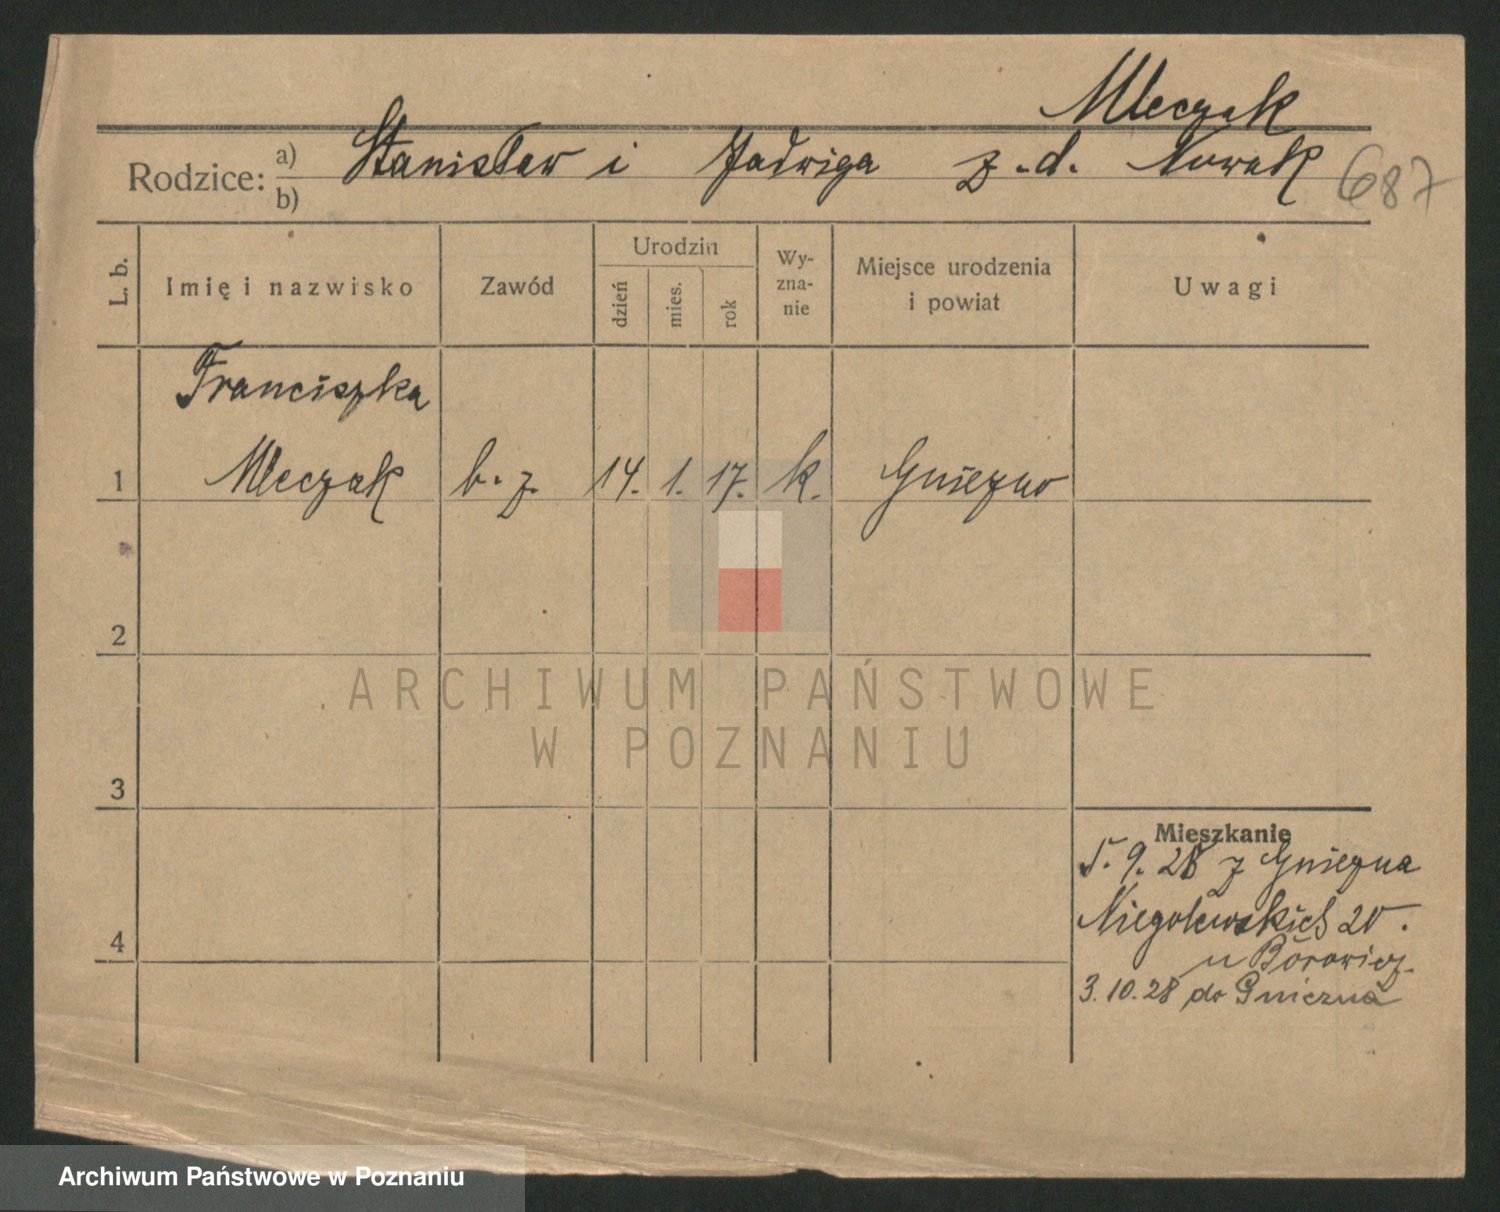 Mleczak
Rodzice: a) Stanisław i Jadwiga z.d. Nowak 687
b)
L. b. Imię i nazwisko Zawód Urodzin dzień mies. rok Wyznanie Miejsce urodzenia i powiat Uwagi
Franciszka
1 Mleczak b. z. 14. 1. 17. k. Gniezno
2
ARCHIWUM PAŃSTWOWE
W POZNANIU
3
Mieszkanie
5. 9. 28 z Gniezna
4 Niegolewskich 20.
u Borowicz.
3. 10. 28 do Gniezna
Archiwum Państwowe w Poznaniu